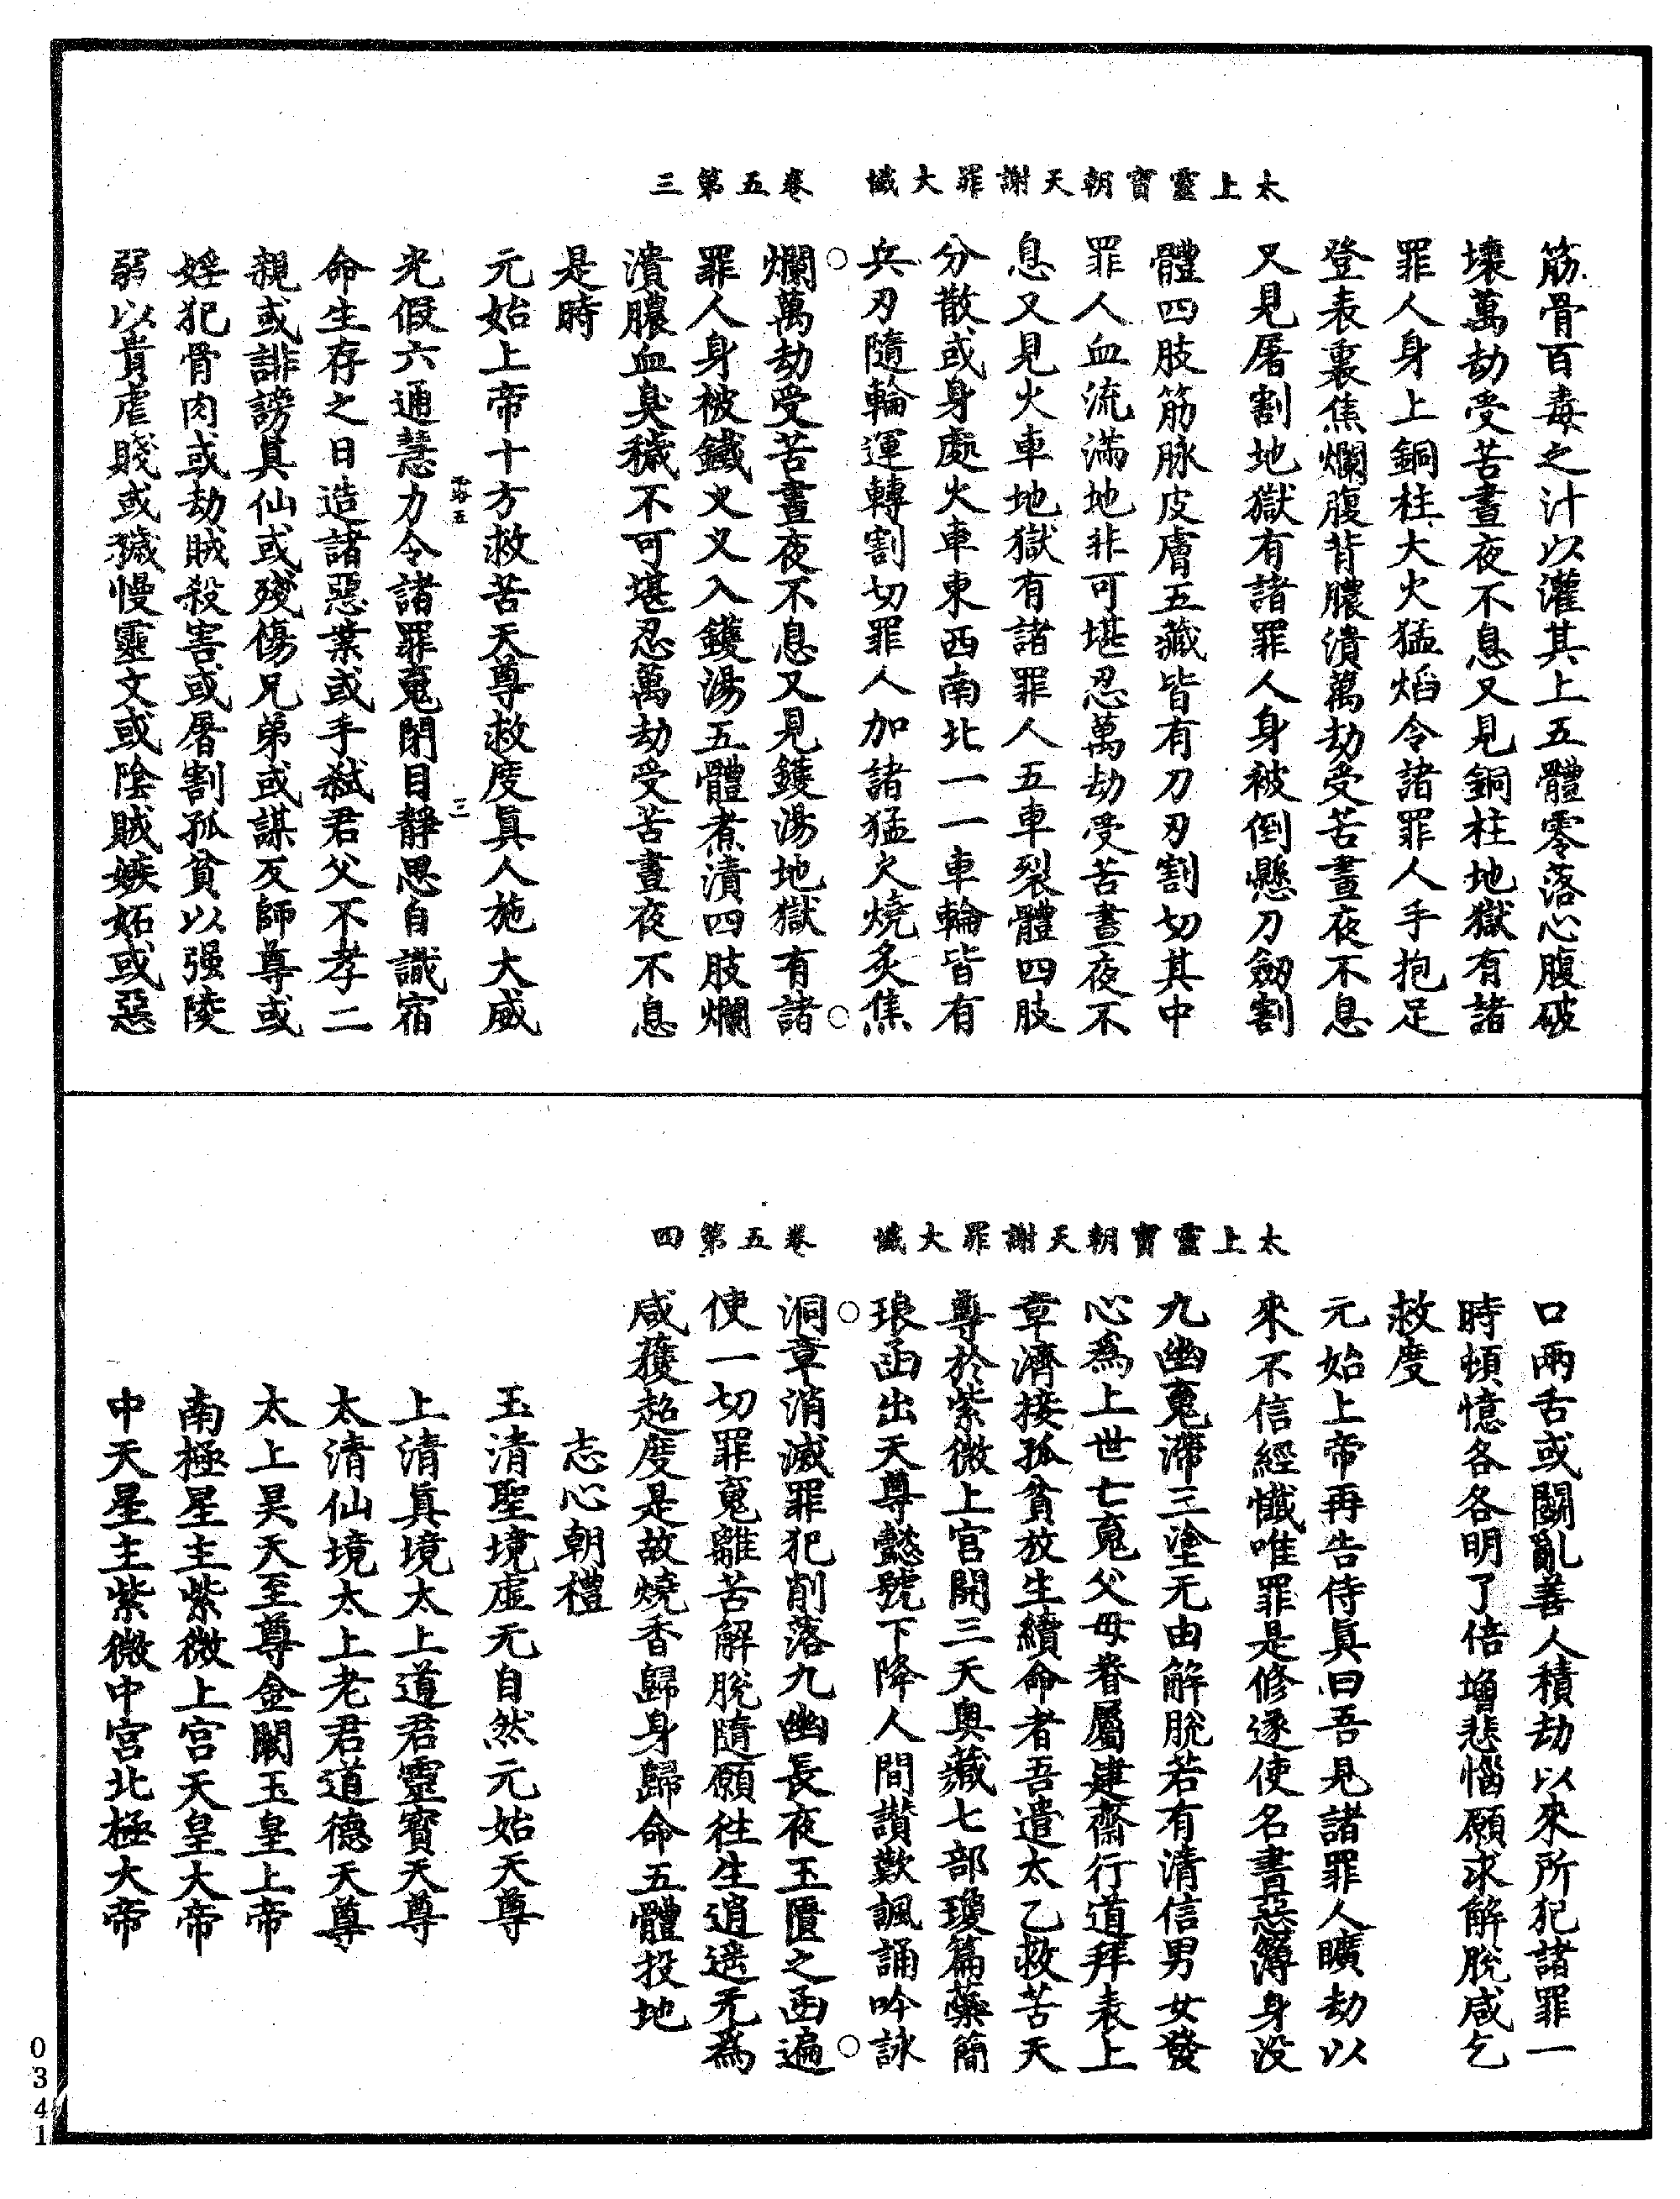 太上靈寶朝天謝罪大懺　卷五第三
筋骨百毒之汁以灌其上五體零落心腹破
壞萬劫受苦晝夜不息又見銅柱地獄有諸
罪人身上銅柱大火猛焰令諸罪人手抱足
登表裏焦爛腹背膿潰萬劫受苦晝夜不息
又見屠割地獄有諸罪人身被倒懸刀劒割
體四肢筋脉皮膚五藏皆有刀刃割切其中
罪人血流滿地非可堪忍萬劫受苦晝夜不
息又見火車地獄有諸罪人五車裂體四肢
分散或身處火車東西南北一一車輪皆有
兵刃隨輪運轉割切罪人加諸猛火燒炙焦
爛萬劫受苦晝夜不息又見鑊湯地獄有諸
罪人身被鐵叉叉入鑊湯五體煮漬四肢爛
潰膿血臭穢不可堪忍萬劫受苦晝夜不息
是時
元始上帝十方救苦天尊救度眞人施大威
五　三
光假六通慧力令諸罪䰟閉目靜思自識宿
命生存之日造諸惡業或手弑君父不孝二
親或誹謗眞仙或殘傷兄弟或謀反師尊或
婬犯骨肉或劫賊殺害或屠割孤貧以强陵
弱以貴虐賤或穢慢靈文或陰賊嫉妬或惡
太上靈寶朝天謝罪大懺　卷五第四
口兩舌或鬭亂善人積劫以來所犯諸罪一
時頓憶各各明了倍增悲惱願求解脫咸乞
救度
元始上帝再告侍眞曰吾見諸罪人曠劫以
來不信經懺唯罪是修遂使名書惡簿身沒
九幽䰟滯三塗无由解脫若有清信男女發
心爲上世七䰟父母眷屬建齋行道拜表上
章濟接孤貧放生續命者吾遣太乙救苦天
尊於紫微上宮開三天奥藏七部瓊篇蘂簡
琅函出天尊懿號下降人間讃歎諷誦吟詠
洞章消滅罪犯削落九幽長夜玉匱之函遍
使一切罪䰟離苦解脫隨願往生逍遥无爲
咸獲超度是故燒香歸身歸命五體投地
志心朝禮
玉清聖境虛无自然元始天尊
上清眞境太上道君靈寶天尊
太清仙境太上老君道德天尊
太上昊天至尊金闕玉皇上帝
南極星主紫微上宮天皇大帝
中天星主紫微中宮北極大帝
0341